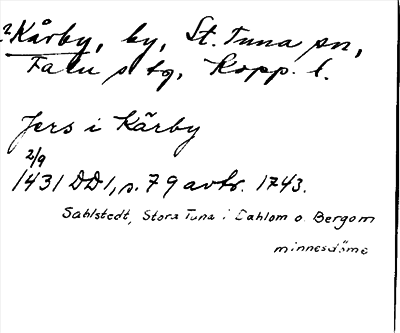 ?Kårby, by, St. Tuna sn,
Falu stg, Kopp. l.
Jers i Kårby
2/9
1431 DD1, s. 79 avtr. 1743.
Sahlstedt, Stora Tuna i Dahlom o. Bergom
minnesdöme